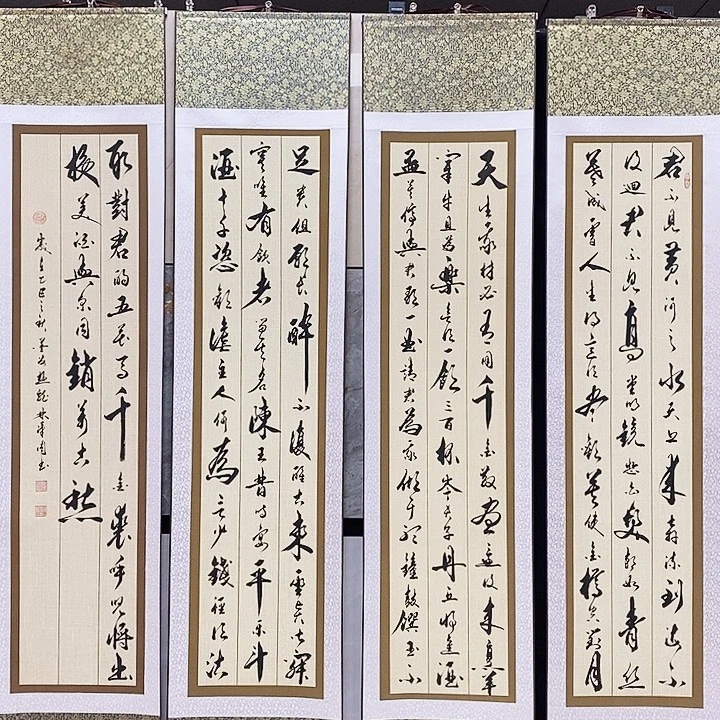 君不見黃河之水天上來奔流到海不
復迴君不見高堂明鏡悲白髮朝如青絲
暮成雪人生得意須盡歡莫使金樽空對月
天生我材必有用千金散盡還復來烹羊
宰牛且為樂會須一飲三百杯岑夫子丹丘將進酒
盃莫停與君歌一曲請君為我傾耳聽鐘鼓饌玉不
足貴但願長醉不復醒古來聖賢皆寂
寞唯有飲者留其名陳王昔時宴平樂斗
酒十千恣歡謔主人何為言少錢徑須沽
取對君酌五花馬千金裘呼兒將出
換美酒與爾同銷萬古愁
歲在乙巳之秋